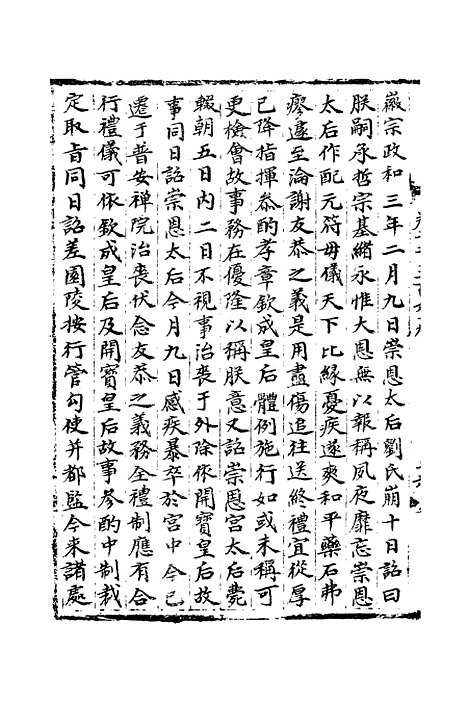 徽宗政和三年二月九日崇恩太后劉氏崩十日詔曰
朕嗣承哲宗基緒永惟大恩無以報稱夙夜靡忘崇恩
太后作配元符毋儀天下比緣憂疾遂爽和平藥石弗
瘳遽至淪謝友恭之義是用盡傷追往送終禮宜從厚
已降指揮叅酌孝章欽成皇后體例施行如或未稱可
更檢會故事務在優隆以稱朕意又詔崇恩宫太后薨
輟朝五日内二日不視事治喪于外除依開寶皇后故
事同日詔崇恩太后今月九日感疾暴卒於宮中今已
遷于普安禪院治喪伏念友恭之義務全禮制應有合
行禮儀可依欽成皇后及開寶皇后故事參酌中制裁
定取㫖同日詔差園陵按行管勾使并都監今来諸處